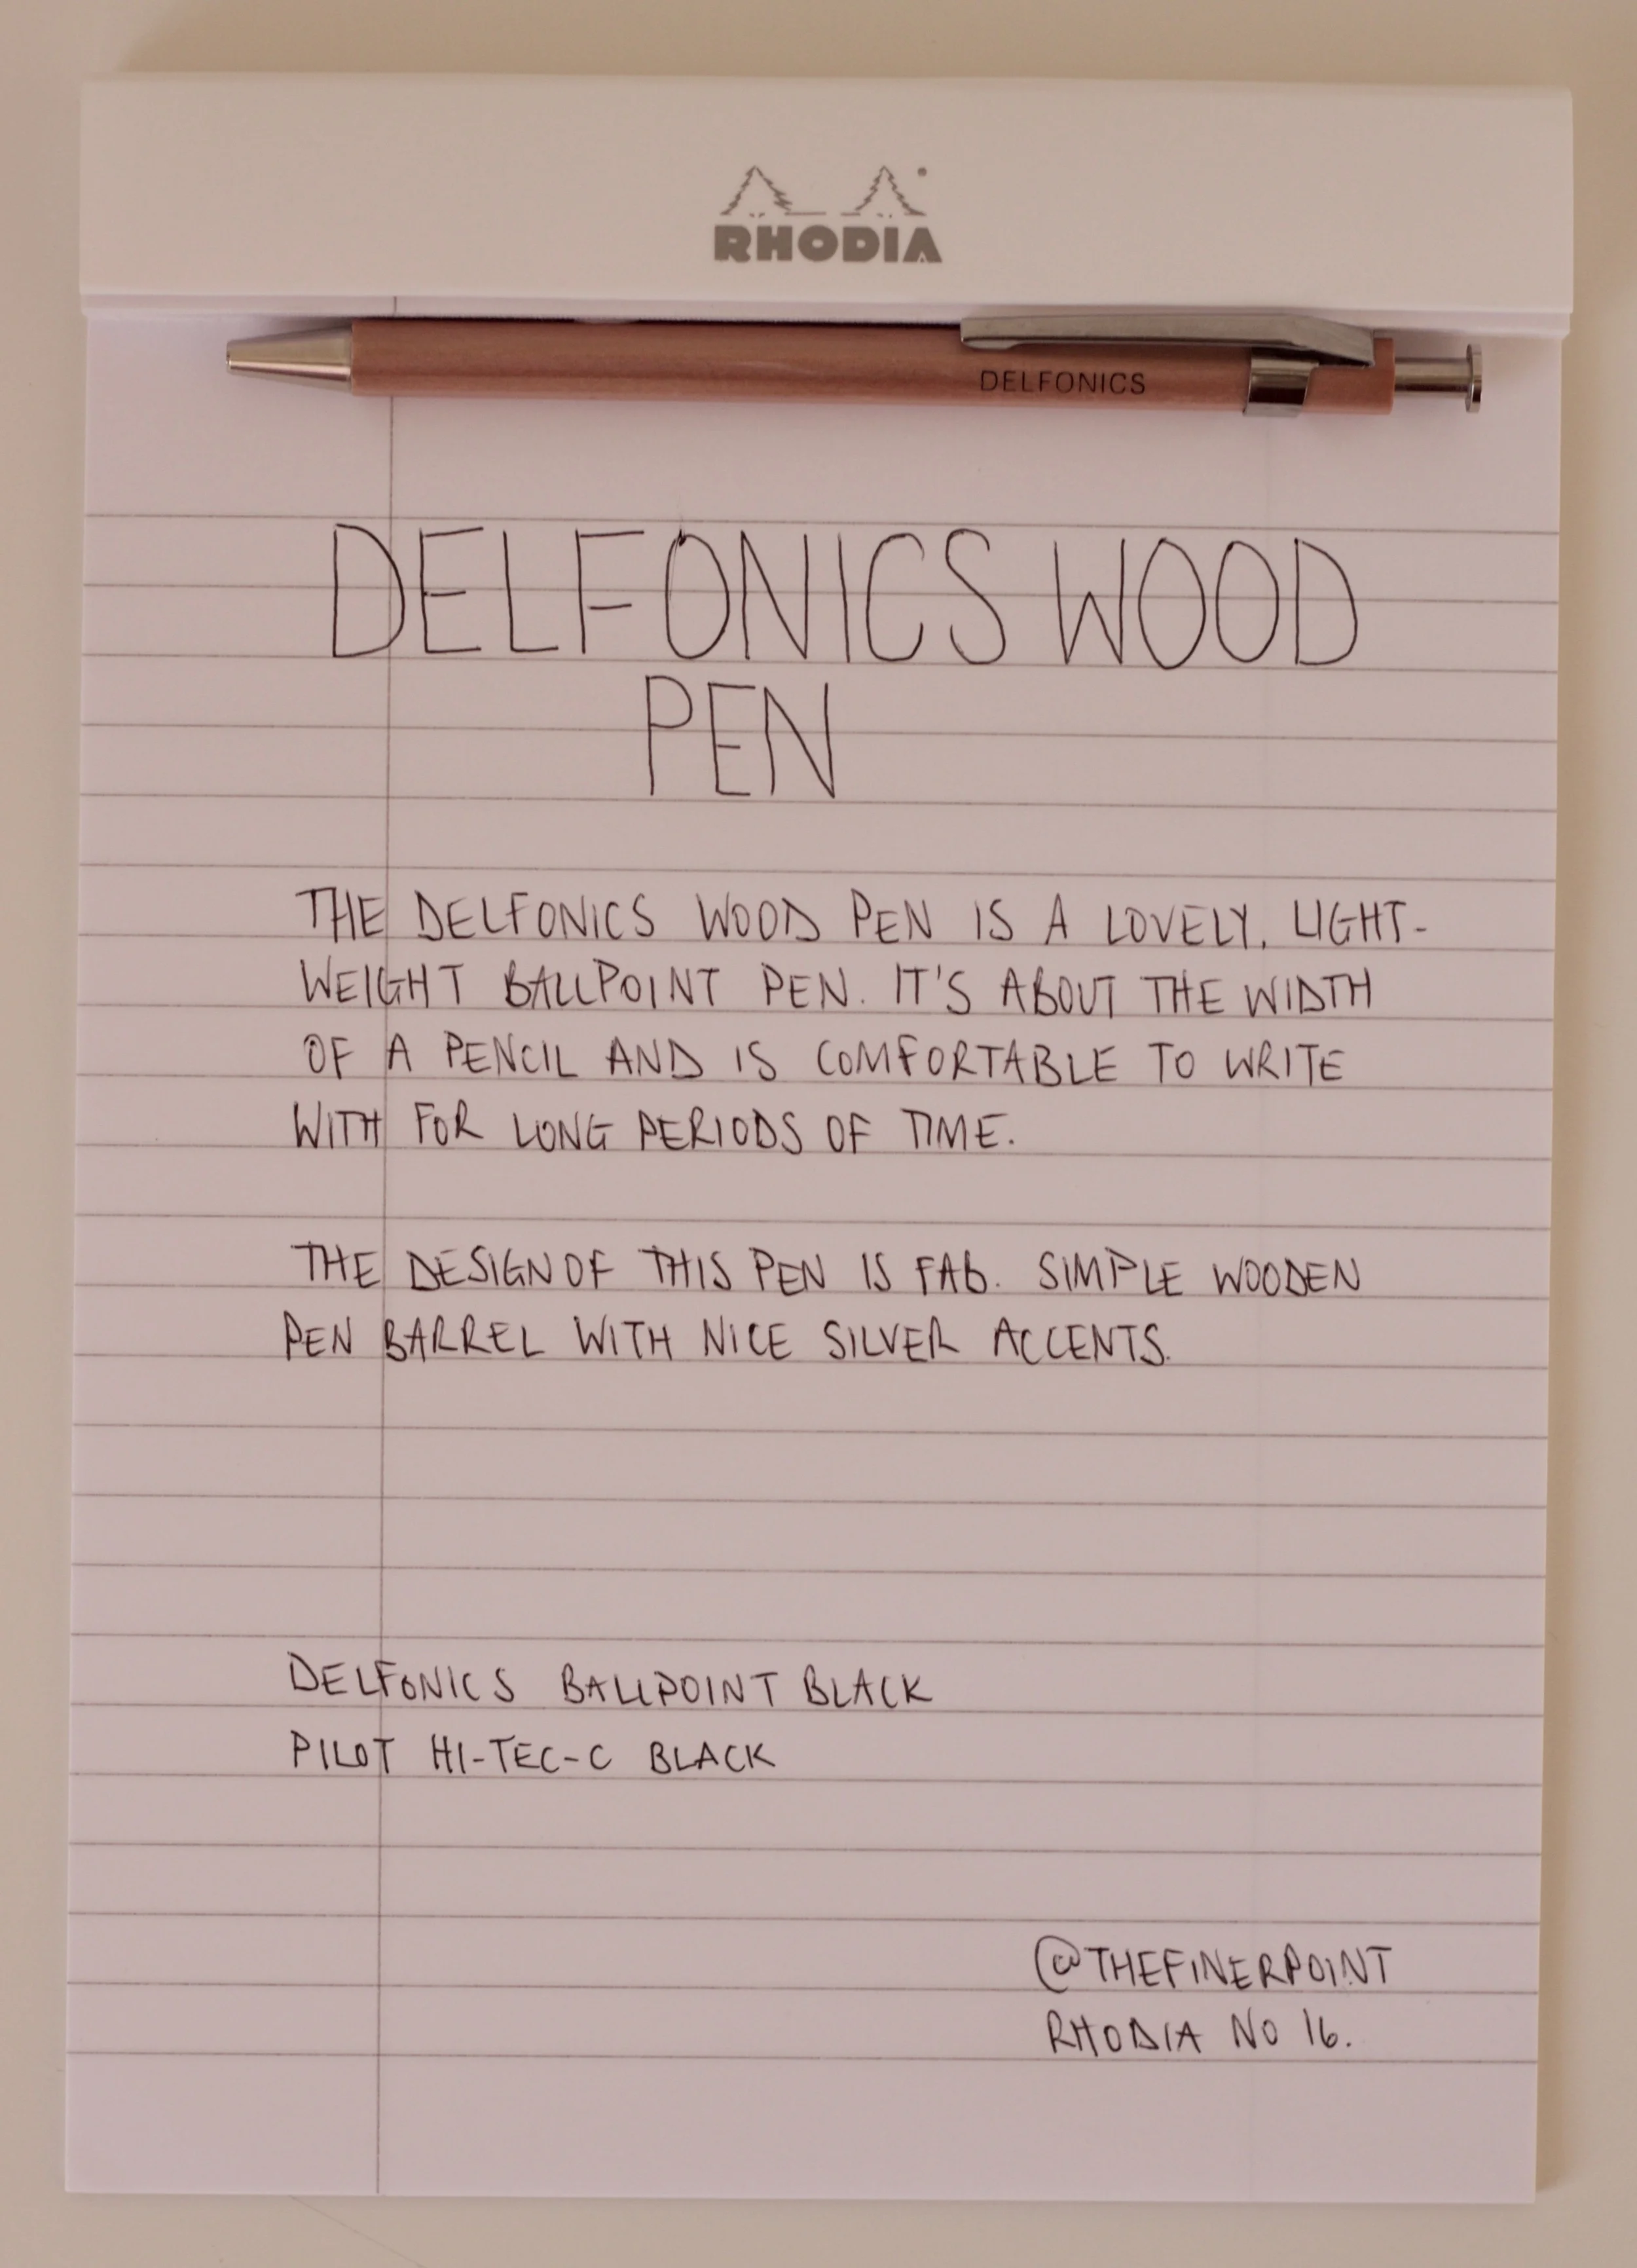 RHODIA
DELFONICS
DELFONICS WOOD
PEN
THE DELFONICS WOOD PEN IS A LOVELY, LIGHT-
WEIGHT BALLPOINT PEN. IT'S ABOUT THE WIDTH
OF A PENCIL AND IS COMFORTABLE TO WRITE
WITH FOR LONG PERIODS OF TIME.
THE DESIGN OF THIS PEN IS FAB. SIMPLE WOODEN
PEN BARREL WITH NICE SILVER ACCENTS.
DELFONICS BALLPOINT BLACK
PILOT HI-TEC-C BLACK
@THEFINERPOINT
RHODIA NO 16.